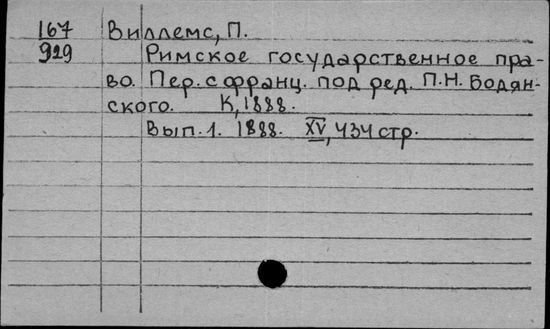 167 Виллемс, П.
929 Римское государственное пра-
во. Пер. с франц. под ред. П.Н. Бодян-
ского. К, 1888.
Вып. 1. 1888. XV, 434 стр.